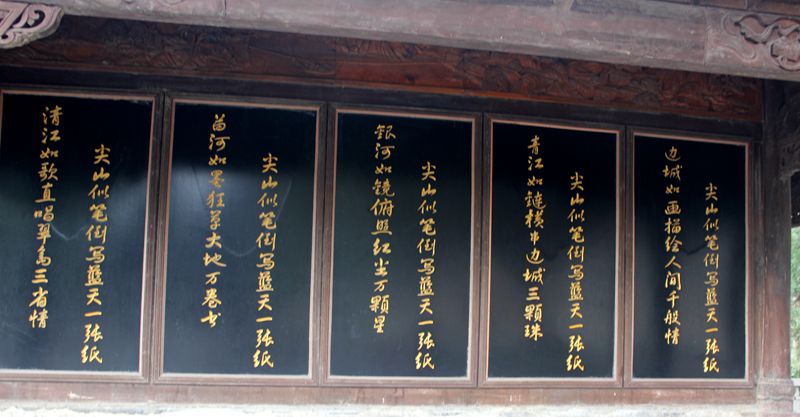 尖山似笔倒写蓝天一张纸
边城如画描绘人间千般情
尖山似笔倒写蓝天一张纸
青江如链横串边城三颗珠
尖山似笔倒写蓝天一张纸
银河如镜俯照红尘万颗星
尖山似笔倒写蓝天一张纸
河如墨狂草大地万卷书
尖山似笔倒写蓝天一张纸
清江如歌直唱翠岛三省情